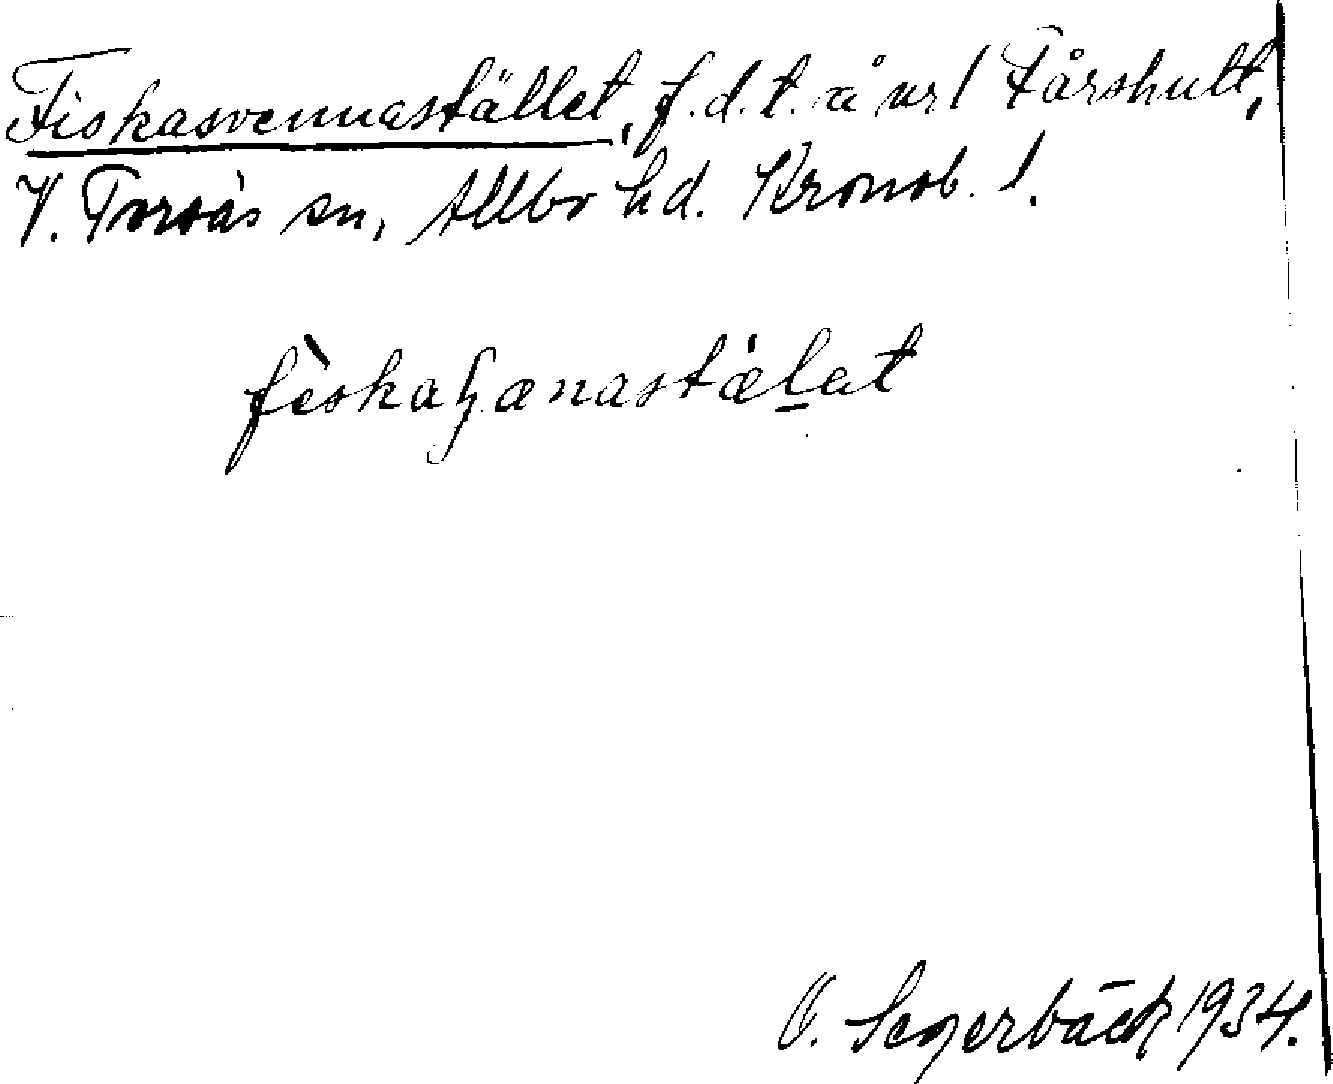 Fiskasvennastället, f.d.t. å nr 1 Fårshult,
V. Torsås sn, Allbo hd. Kronob. l.
fìskaɧænastælat
O. Segerbäck 1934.